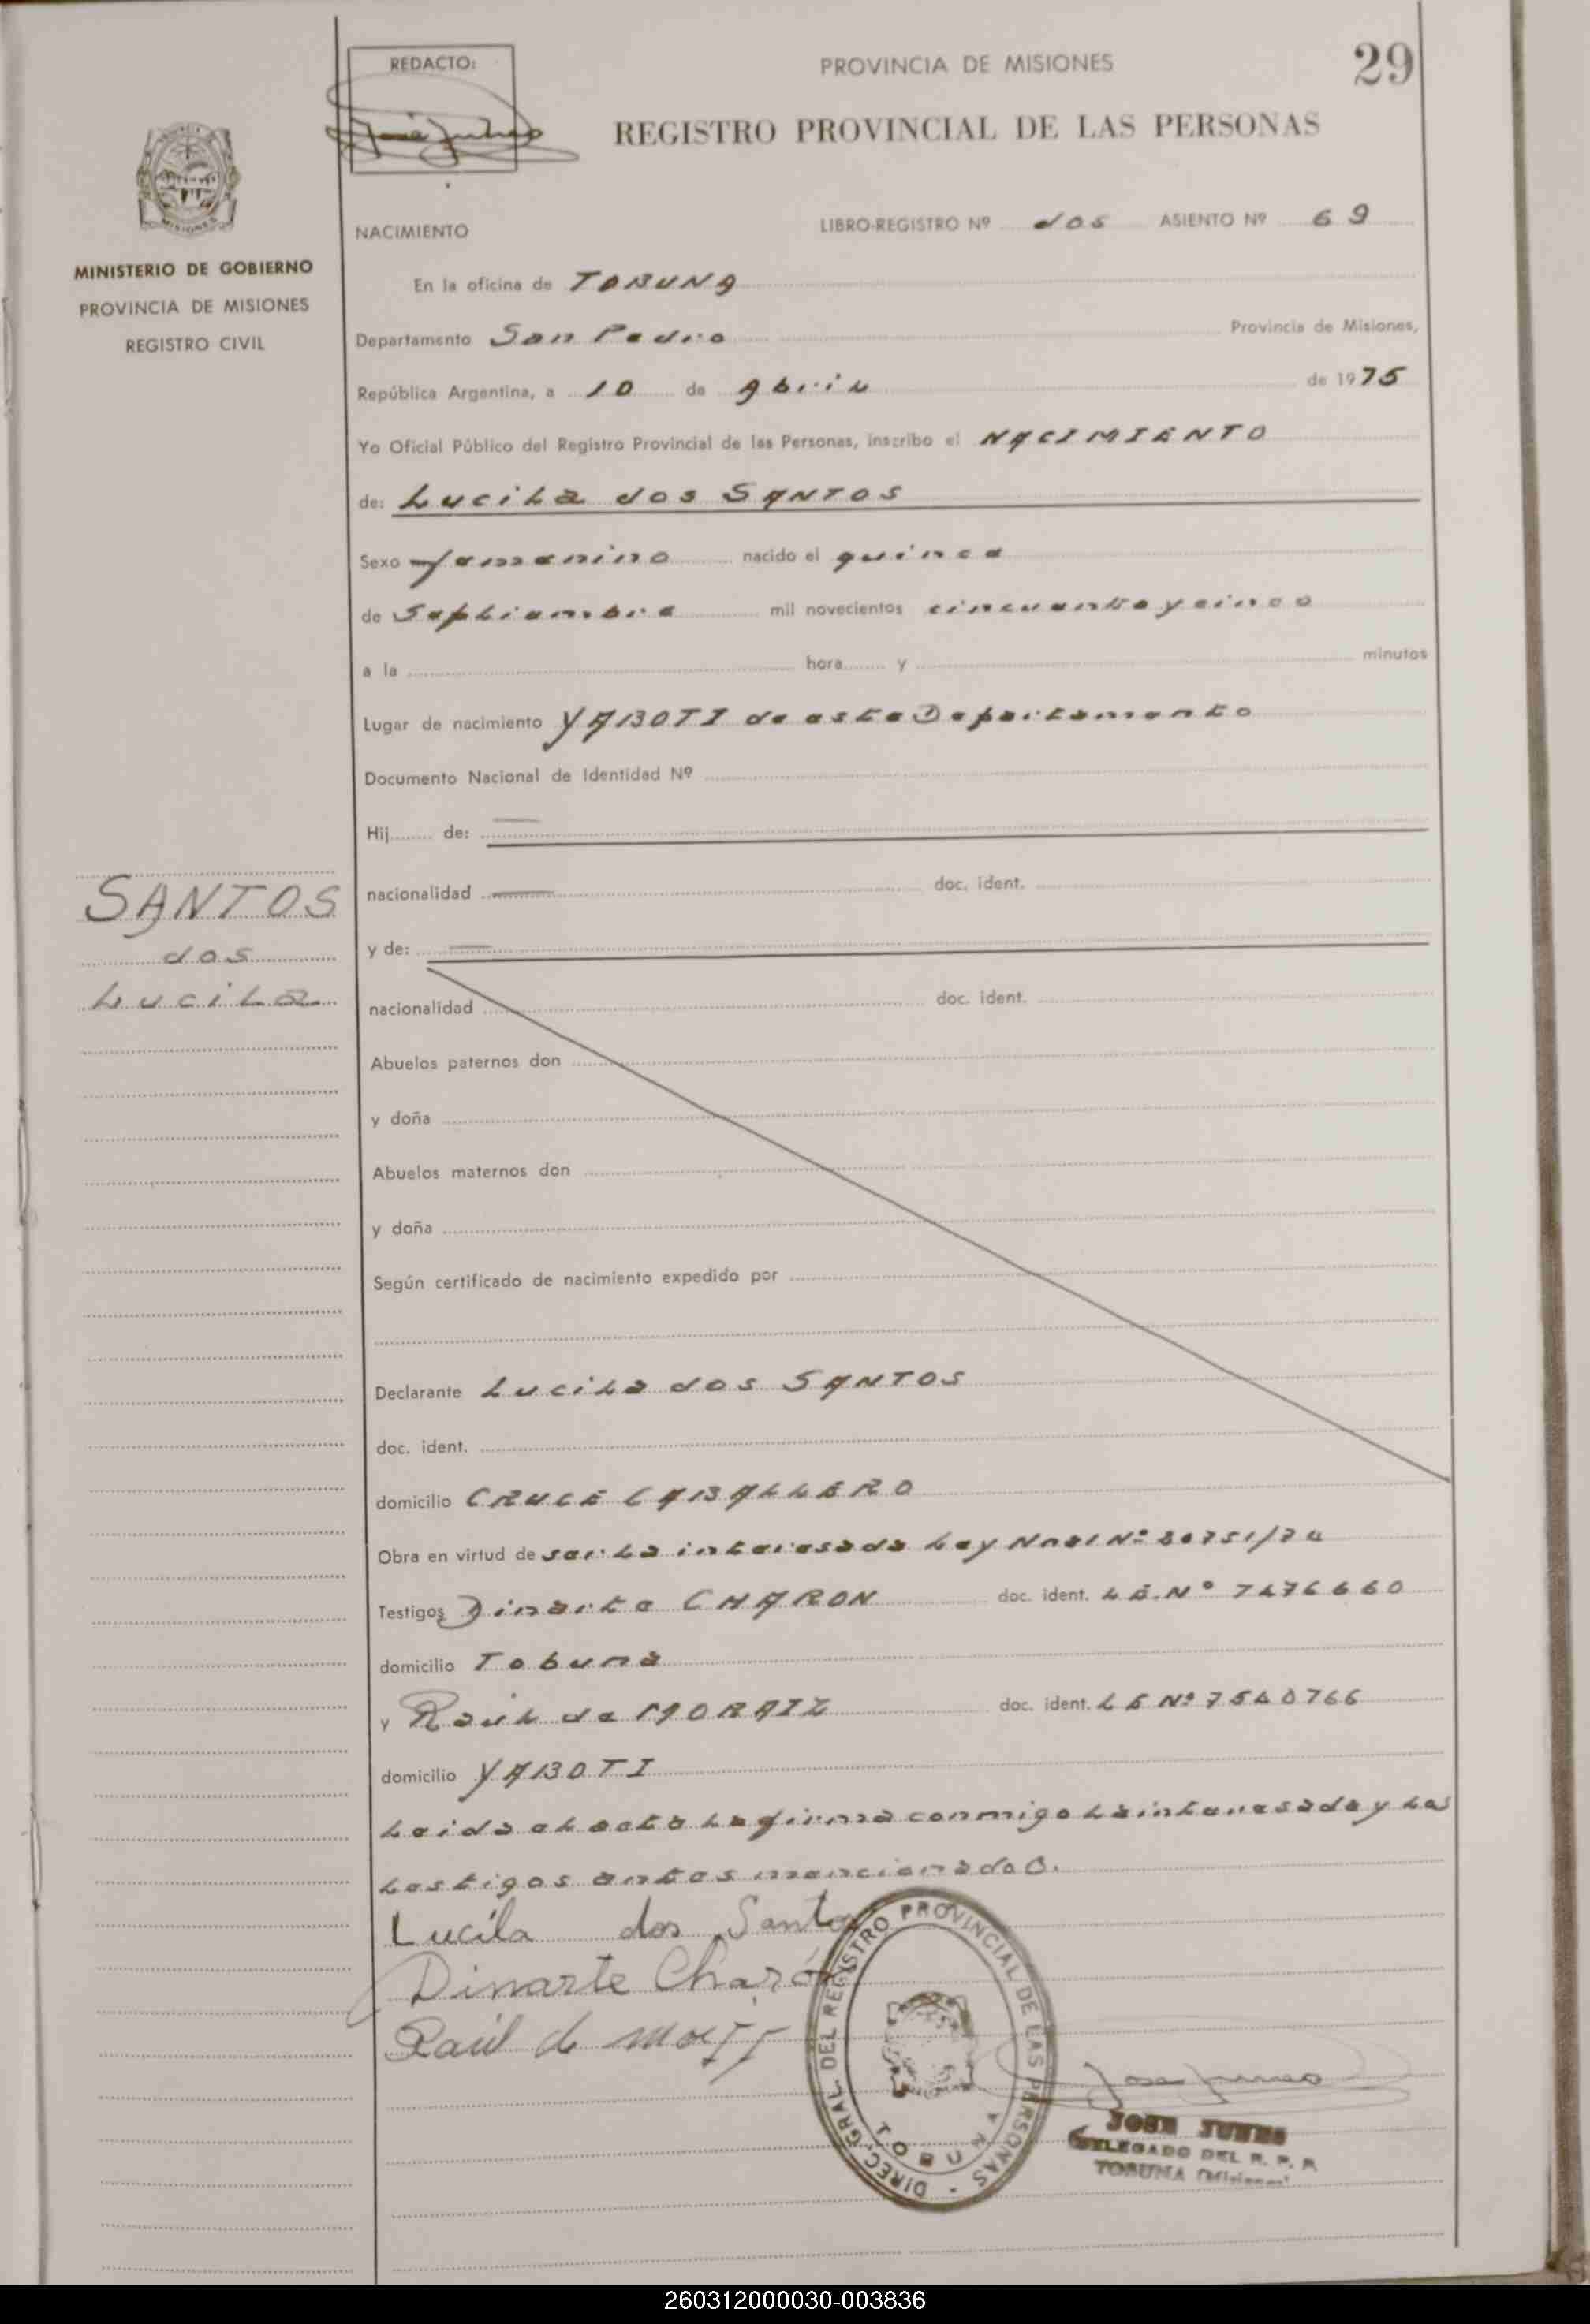 29
REDACTO:
PROVINCIA DE MISIONES
REGISTRO PROVINCIAL DE LAS PERSONAS
MISIONES
MINISTERIO DE GOBIERNO
PROVINCIA DE MISIONES
REGISTRO CIVIL
NACIMIENTO LIBRO-REGISTRO Nº dos ASIENTO Nº 69
En la oficina de TOBUNA
Departamento San Pedro Provincia de Misiones,
República Argentina, a 10 de Abril de 1975
Yo Oficial Público del Registro Provincial de las Personas, inscribo el NACIMIENTO
de: Lucila dos SANTOS
Sexo femenino nacido el quince
de Septiembre mil novecientos cincuenta y cinco
a la hora y minutos
Lugar de nacimiento YABOTI de este Departamento
Documento Nacional de Identidad Nº
Hij de:
SANTOS
dos
Lucila
nacionalidad doc. ident.
y de:
nacionalidad doc. ident.
Abuelos paternos don
y doña
Abuelos maternos don
y doña
Según certificado de nacimiento expedido por
Declarante Lucila dos SANTOS
doc. ident.
domicilio CRUCE CABALLERO
Obra en virtud de ser la interesada Ley Nº 20751/74
Testigos Dinarte CHARON doc. ident. LE.Nº 7476660
domicilio Tobuna
y Raúl de MORAIZ doc. ident. LE Nº
domicilio YABOTI
Leida el acta la firma conmigo la interesada y los
testigos antes mencionado.
Lucila dos Santos
Dinarte Charón
Raúl de
DIREC. GRAL. DEL REGISTRO PROVINCIAL DE LAS PERSONAS -
TOBUNA
DELEGADO DEL R. P. P.
TOBUNA (Misiones)
260312000030-003836